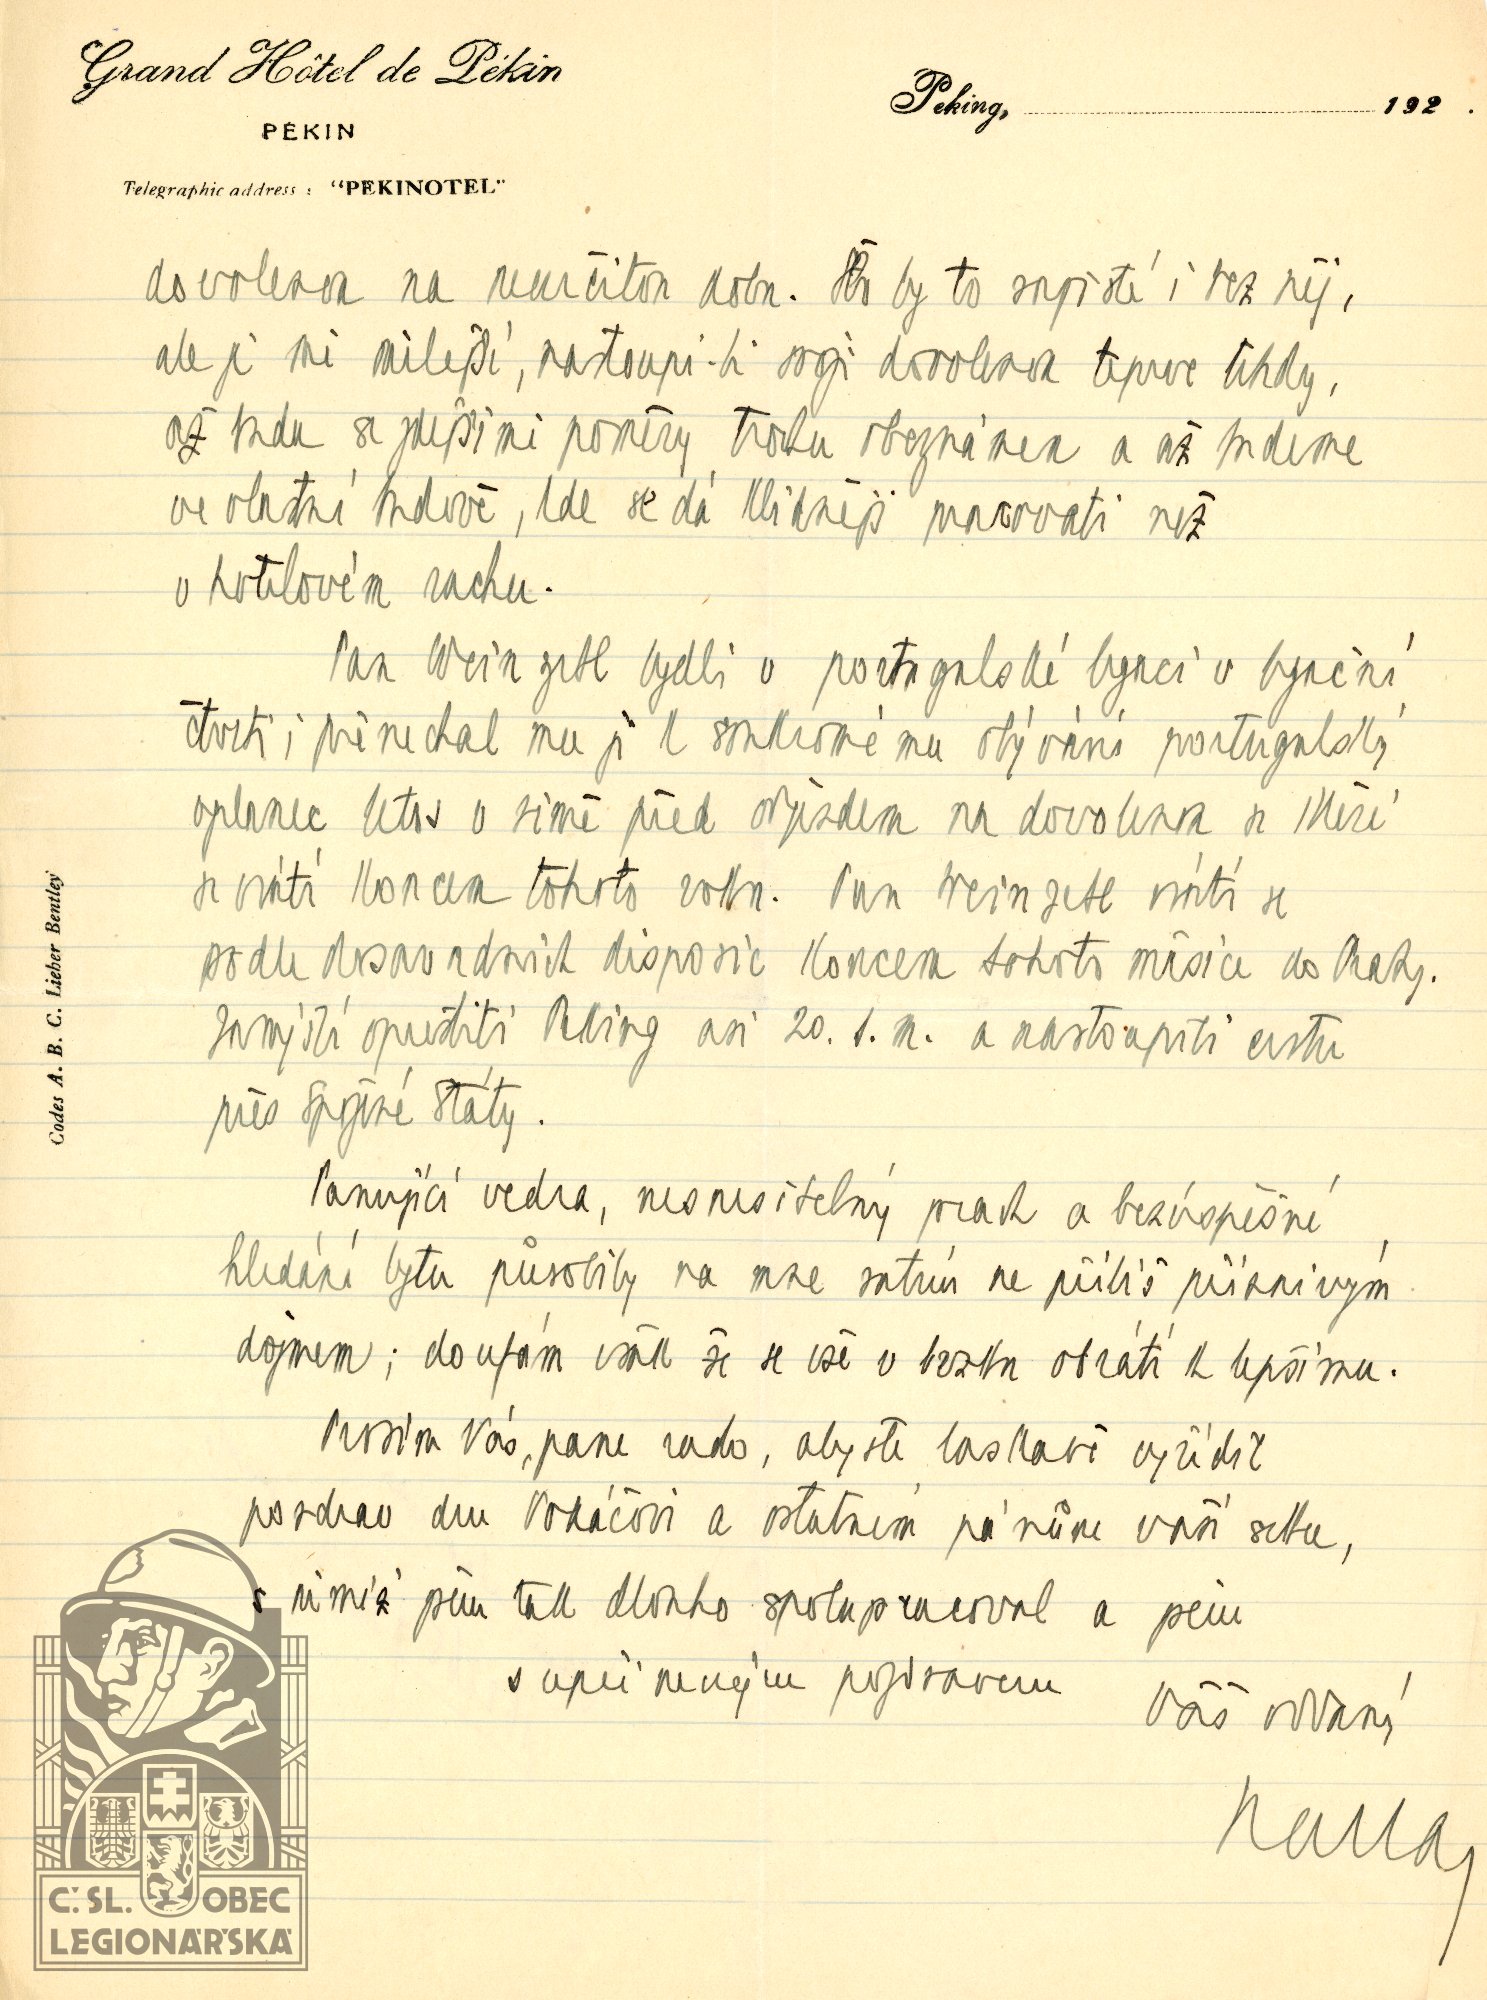 Grand Hôtel de Pékin
PEKIN
Telegraphic address : "PEKINOTEL"
Peking, 192 .
dovolenou na neurčitou dobu. Šlo by to zajisté i bez něj,
ale je mi milejší, nastoupí-li svoji dovolenou teprve tehdy,
až budu se zdejšími poměry trochu obeznámen a až budeme
ve vlastní budově, kde se dá klidněji pracovati než
v hotelovém ruchu.
Pan Weinzettl bydlí v portugalské legaci v legační
čtvrti; přenechal mu ji k soukromému obývání portugalský
vyslanec letos v zimě před odjezdem na dovolenou ze které
se vrátí koncem tohoto roku. Pan Weinzettl vrátí se
podle dosavadních disposic koncem tohoto měsíce do Prahy.
Zamýšlí opustiti Peking asi 20. t. m. a nastoupiti cestu
přes Spojené Státy.
Panující vedra, nesnesitelný prach a bezúspěšné
hledání bytu působily na mne zatím ne příliš příznivým
dojmem; doufám však že se vše v brzku obrátí k lepšímu.
Prosím Vás, pane rado, abyste laskavě vyřídil
pozdrav dru Kodáčovi a ostatním pánům vaší sekce,
s nimiž jsem tak dlouho spolupracoval a jsem
s upřímným pozdravem
Váš oddaný
Halla
Codes A. B. C. Lieber Bentley
Č. SL. OBEC
LEGIONÁŘSKÁ